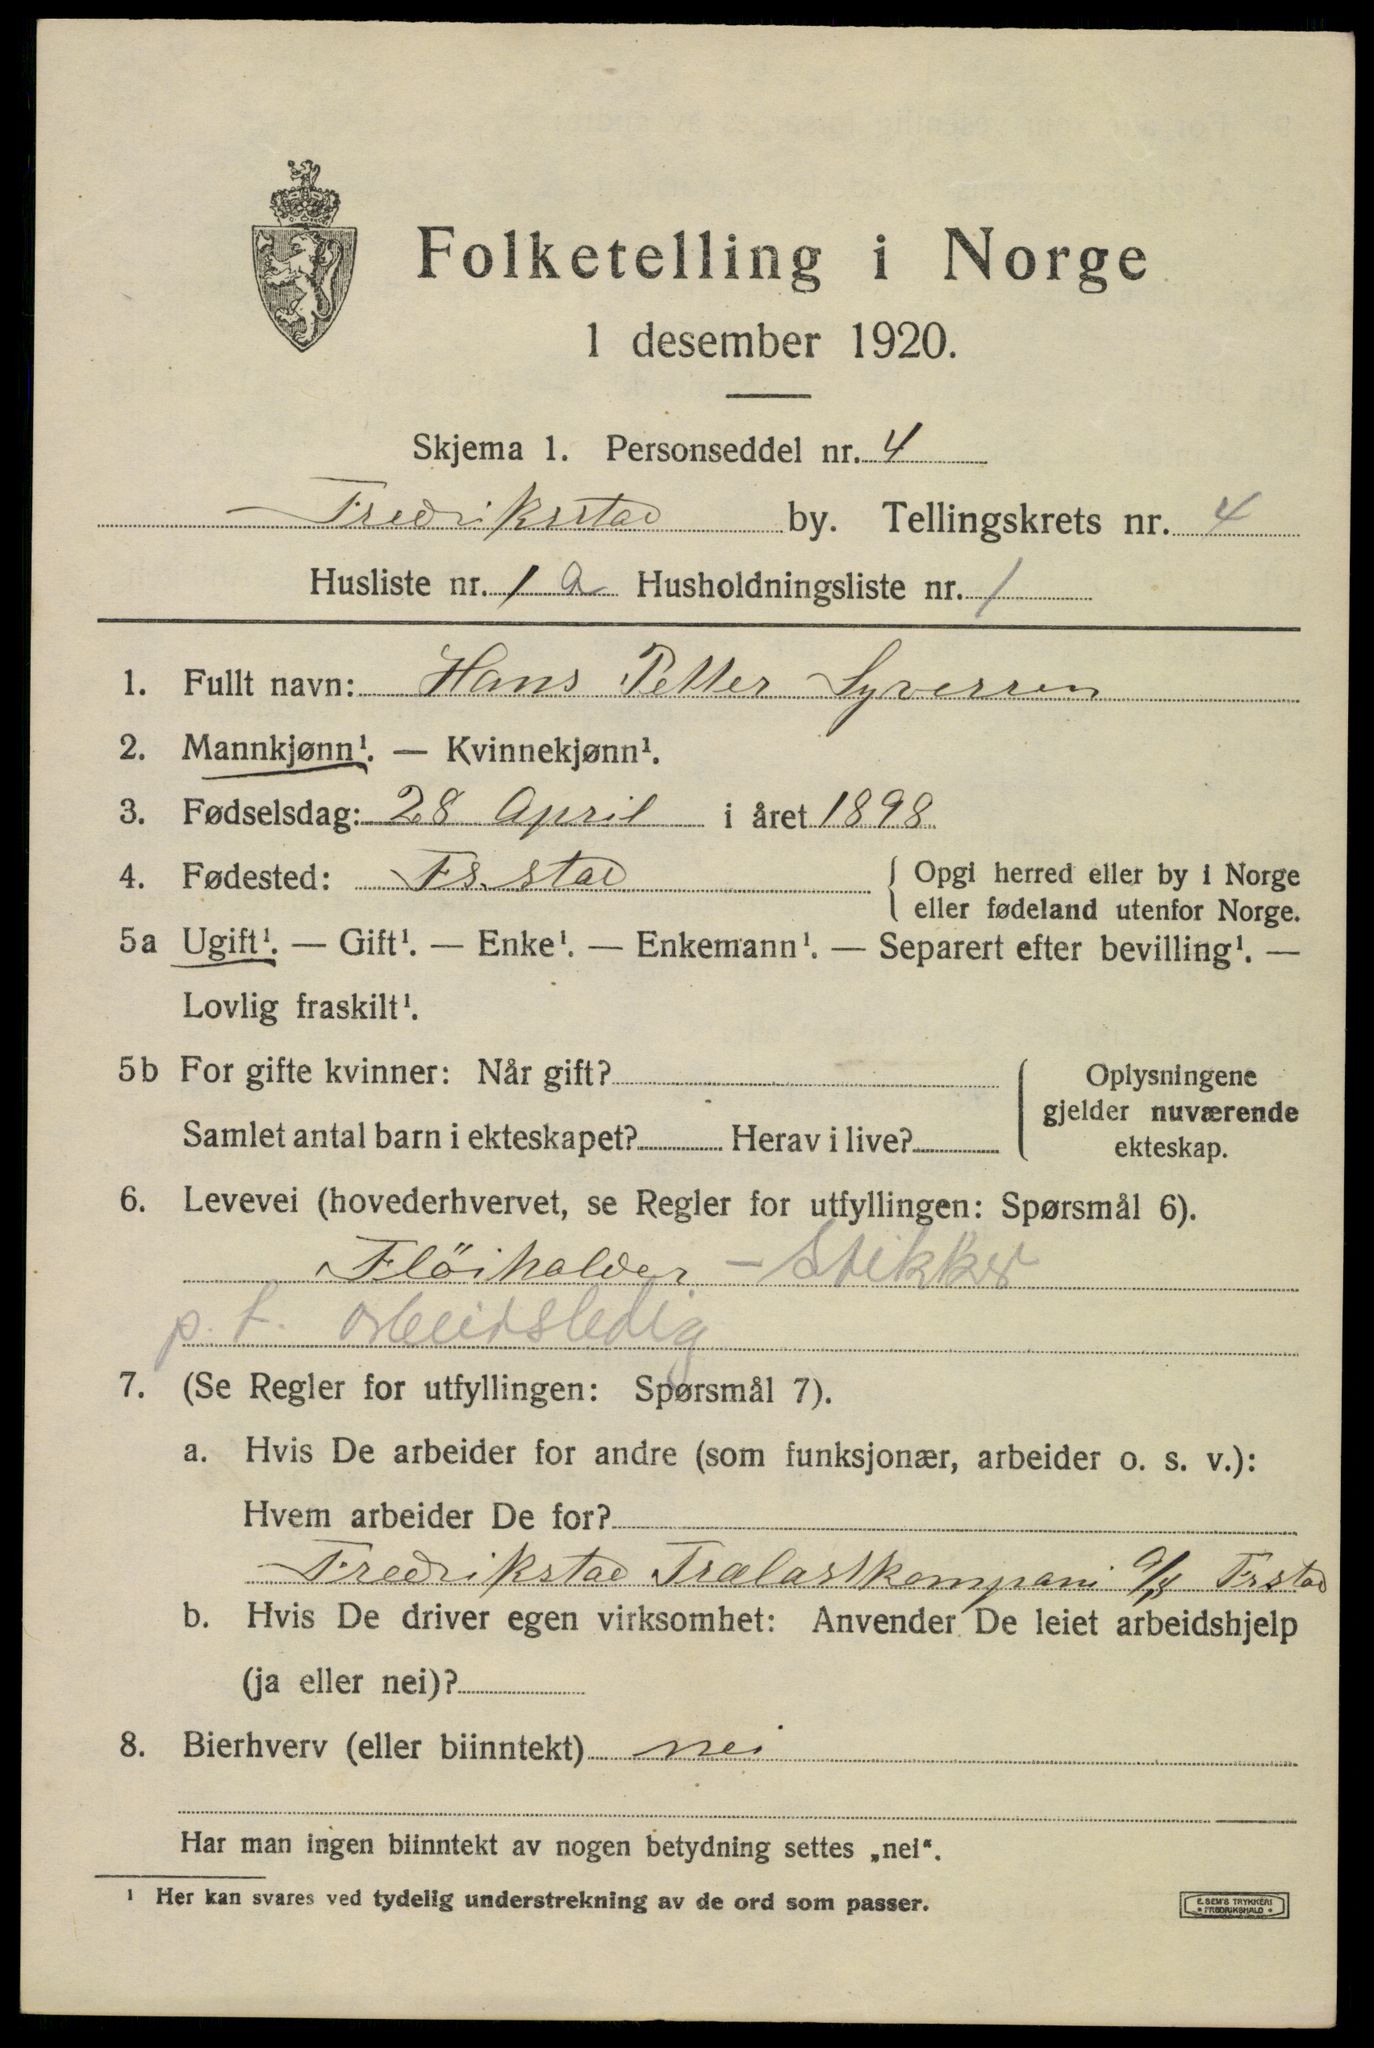 Folketelling i Norge
1 desember 1920.
Skjema 1. Personseddel nr. 4
Fredriksstad by. Tellingskrets nr. 4
Husliste nr. 1 a Husholdningsliste nr. 1
1. Fullt navn: Hans Petter Syversen
2. Mannkjønn¹. — Kvinnekjønn¹.
3. Fødselsdag: 28 April i året 1898
4. Fødested: Fs.stad { Opgi herred eller by i Norge
eller fødeland utenfor Norge.
5a Ugift¹. — Gift¹. — Enke¹. — Enkemann¹. — Separert efter bevilling¹. —
Lovlig fraskilt¹.
5b For gifte kvinner: Når gift?
Samlet antal barn i ekteskapet? Herav i live?
Oplysningene
gjelder nuværende
ekteskap.
6. Levevei (hovederhvervet, se Regler for utfyllingen: Spørsmål 6).
Flöiholder - Stikker
p. t. arbeidsledig
7. (Se Regler for utfyllingen: Spørsmål 7).
a. Hvis De arbeider for andre (som funksjonær, arbeider o. s. v.):
Hvem arbeider De for?
Fredrikstad Trælastkompani a/s Frstad
b. Hvis De driver egen virksomhet: Anvender De leiet arbeidshjelp
(ja eller nei)?
8. Bierhverv (eller biinntekt) nei
Har man ingen biinntekt av nogen betydning settes „nei“.
¹ Her kan svares ved tydelig understrekning av de ord som passer.
E. SEM'S TRYKKERI
* FREDRIKSHALD *